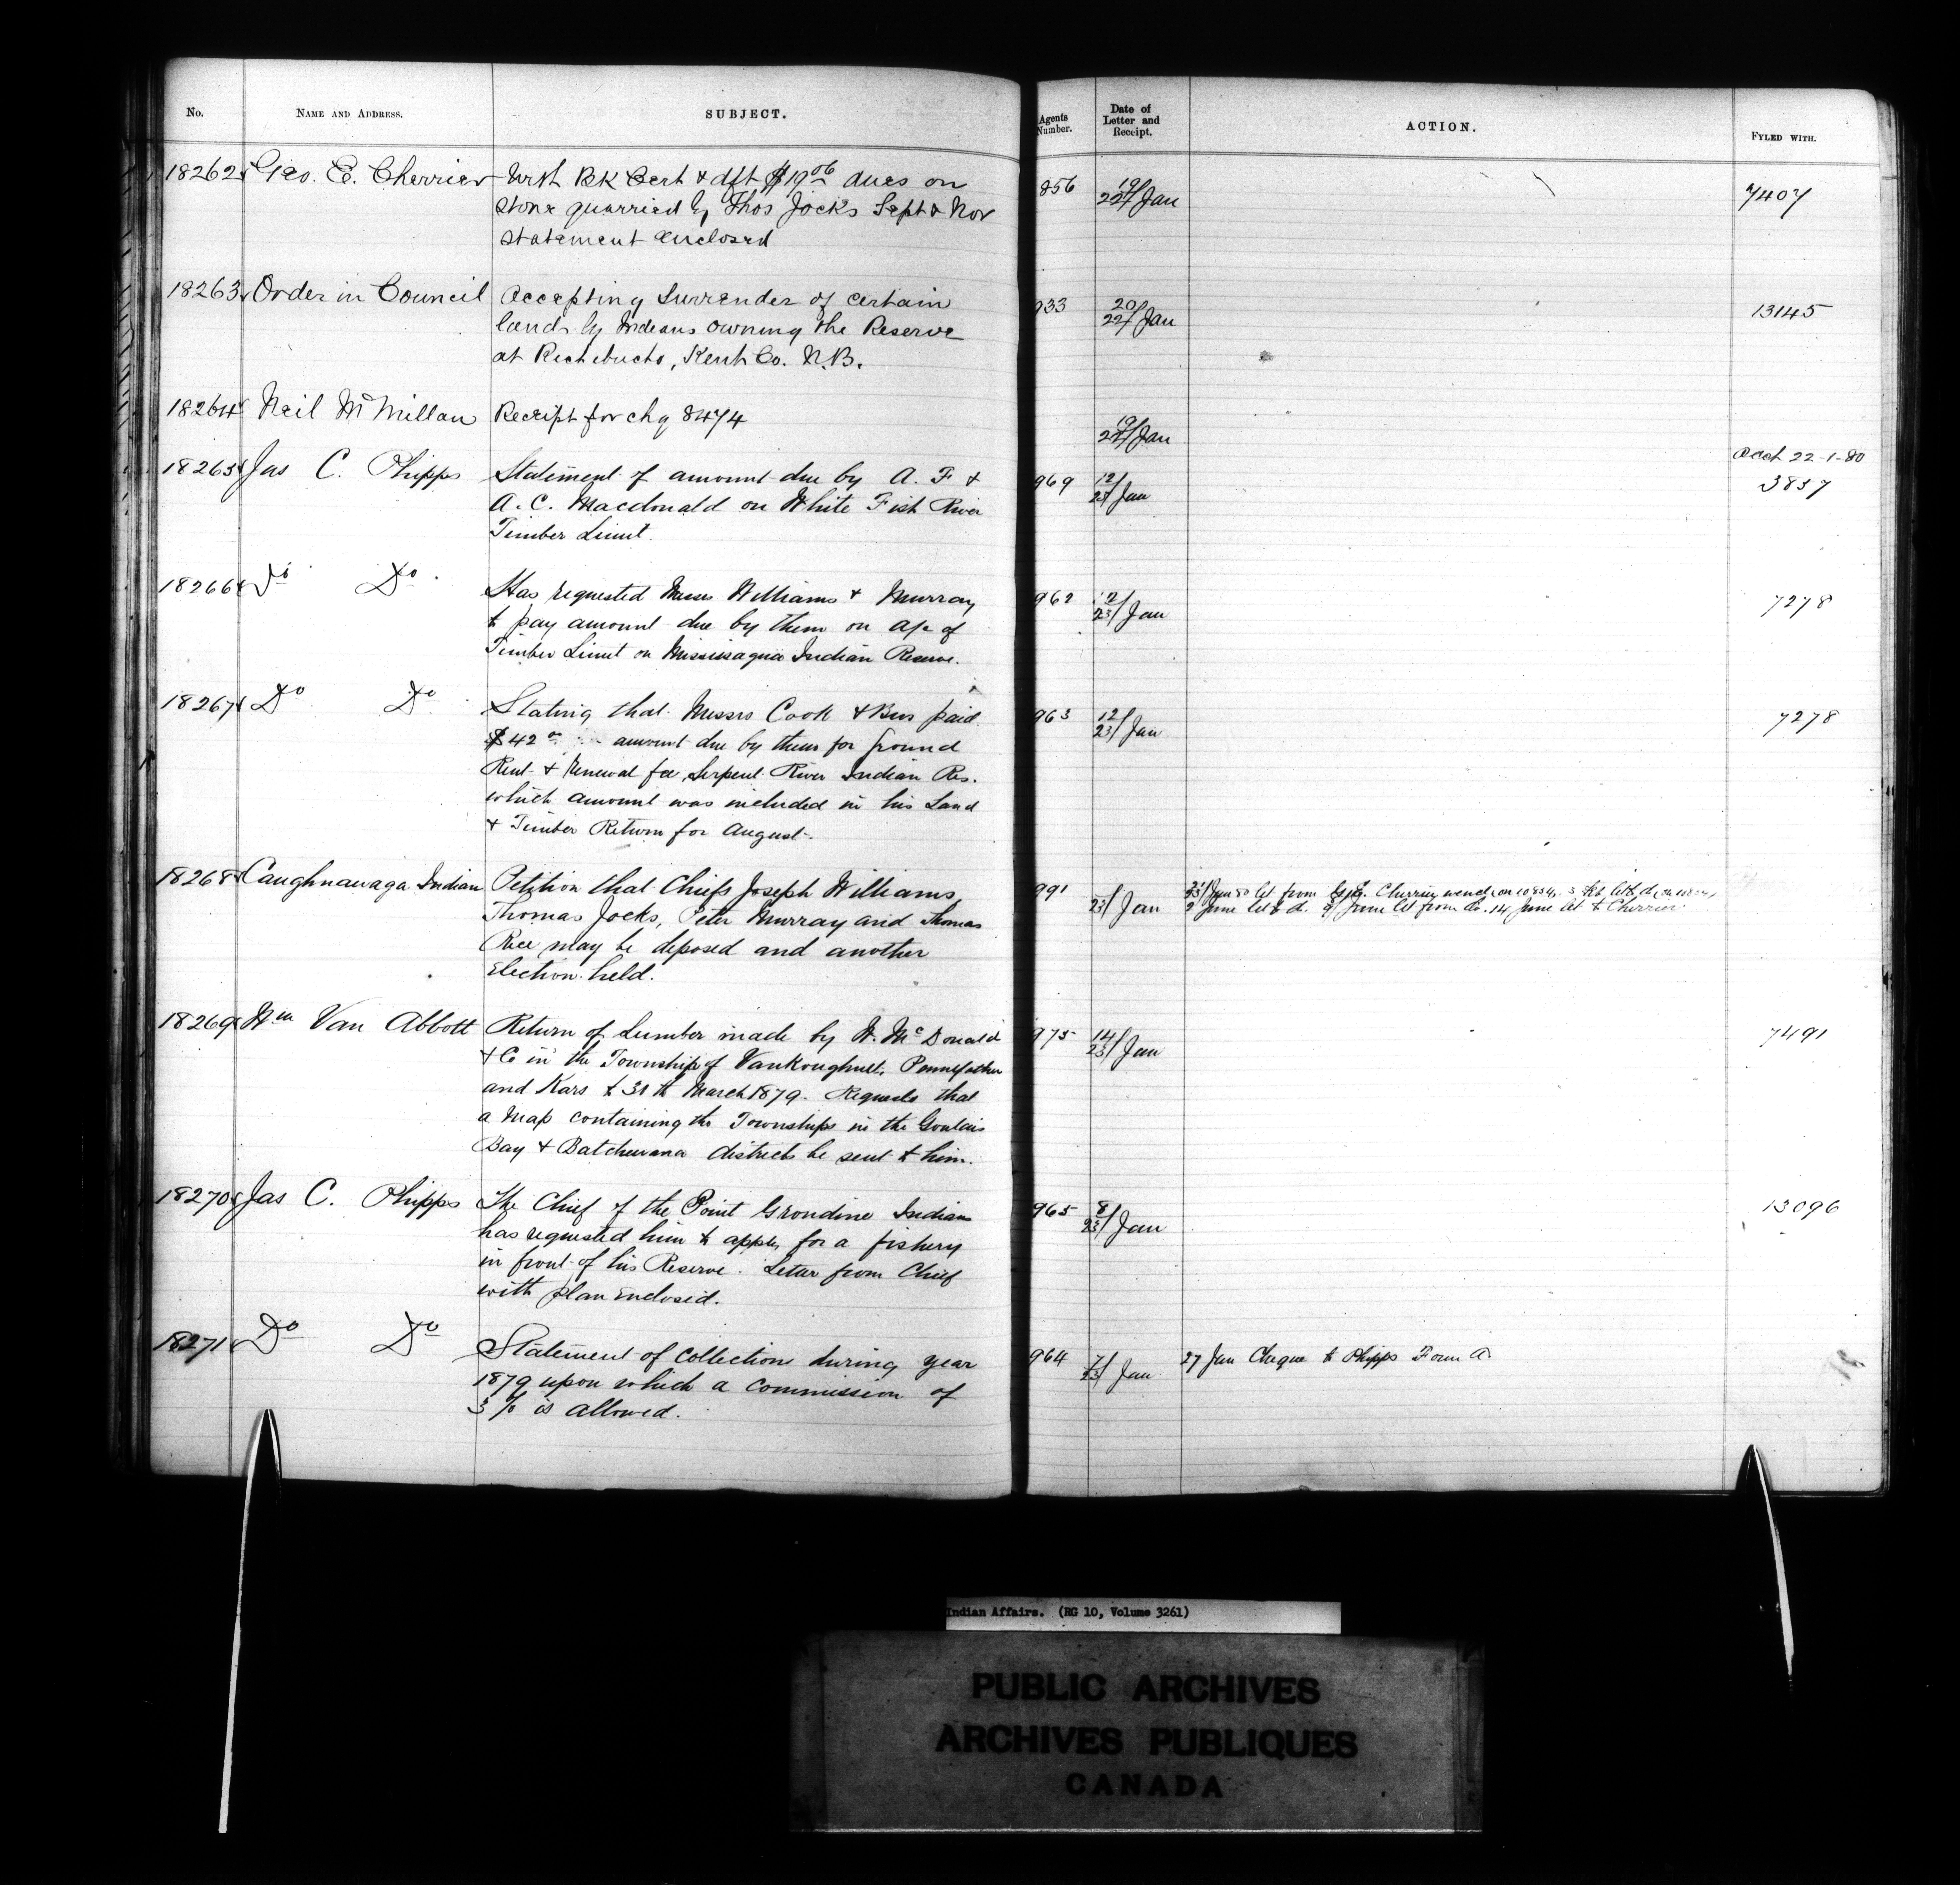 No. NAME AND ADDRESS. SUBJECT. Agents Number. Date of Letter and Receipt. ACTION. FYLED WITH.
18262 Geo. E. Cherrier With BK Cert & dft $19.06 dues on 856 19/22 Jan 7407
stone quarried by Thos Jocks Sept & Nov
statement enclosed
18263 Order in Council Accepting Surrender of certain 933 20/22 Jan 13145
lands by Indians owning the Reserve
at Richebucto, Kent Co. N.B.
18264 Neil McMillan Receipt for chq 8474 Jan
Acct 22-1-80
18265 Jas C. Phipps Statement of amount due by A. F & 969 12/ Jan 3837
A. C. Macdonald on White Fish River
Timber Limit.
18266 Do Do. Has requested Messrs Williams & Murray 962 12/23 Jan 7278
to pay amount due by them on a/c of
Timber Limit on Mississagua Indian Reserve.
18267 Do Do Stating that Messrs Cook & Bros paid 963 12/23 Jan 7278
$42 amount due by them for ground
Rent & Renewal fee Serpent River Indian Res.
which amount was included in his Land
& Timber Return for August.
18268 Caughnawaga Indian Petition that Chiefs Joseph Williams, 991 23/ Jan 23/ Jan 80 let from G. E. Cherrier
Thomas Jocks, Peter Murray and Thomas 9 June let to d. 9/ June let from do. 14 June let to Cherrier
Rice may be deposed and another
Election held.
18269 Wm Van Abbott Return of Lumber made by W. McDonald 975 14/23 Jan 7491
& Co in the Townships of Vankoughnet, Pennefather
and Kars to 31th March 1879. Requests that
a Map containing the Townships in the Goulais
Bay & Batchewana districts be sent to him.
18270 Jas C. Phipps The Chief of the Point Grondine Indians 965 8/23 Jan 13096
has requested him to apply for a fishery
in front of his Reserve. Letter from Chief
with plan Enclosed.
18271 Do Do Statement of collections during year 964 7/23 Jan 27 Jan Cheque to Phipps Form A.
1879 upon which a commission of
5% is allowed.
Indian Affairs. (RG 10, Volume 3261)
PUBLIC ARCHIVES
ARCHIVES PUBLIQUES
CANADA